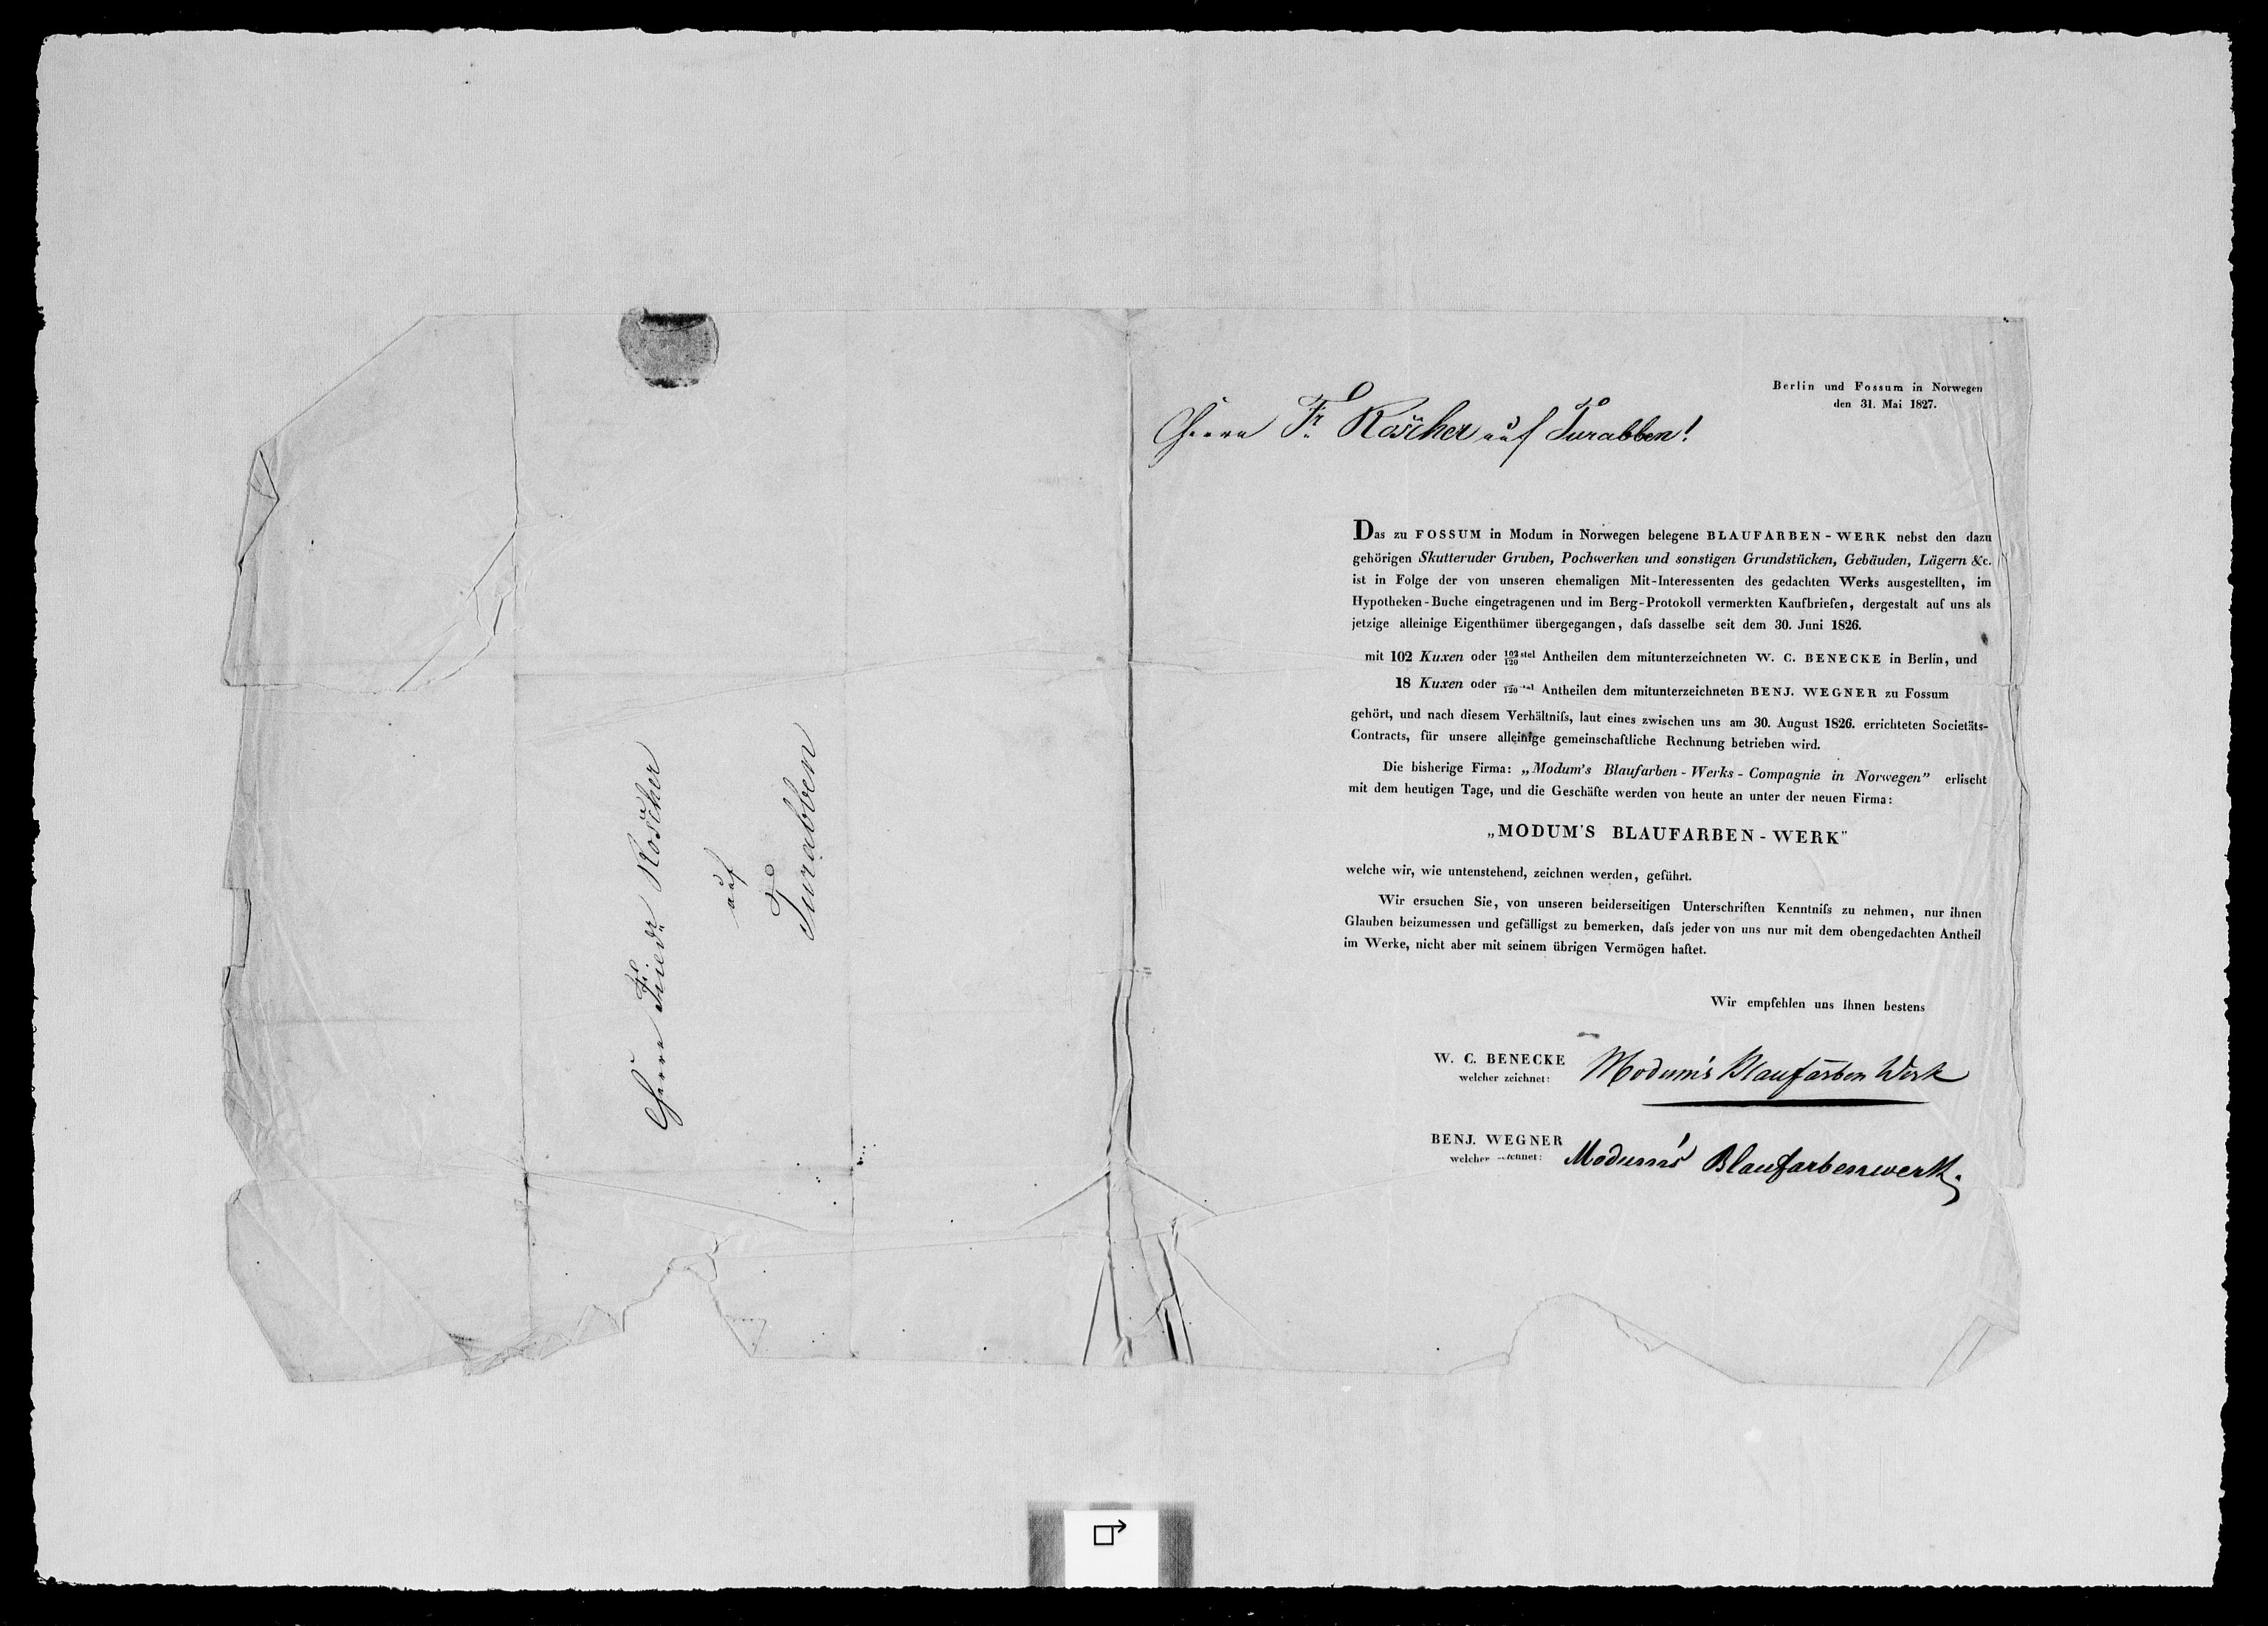 Herrn Friedr. Röscher
auf
Turabben
Berlin und Fossum in Norwegen
den 31. Mai 1827.
Herrn Fr. Röscher auf Turabben!
Das zu FOSSUM in Modum in Norwegen belegene BLAUFARBEN-WERK nebst den dazu
gehörigen Skutteruder Gruben, Pochwerken und sonstigen Grundstücken, Gebäuden, Lägern &c.
ist in Folge der von unseren ehemaligen Mit-Interessenten des gedachten Werks ausgestellten, im
Hypotheken-Buche eingetragenen und im Berg-Protokoll vermerkten Kaufbriefen, dergestalt auf uns als
jetzige alleinige Eigenthümer übergegangen, daſs dasselbe seit dem 30. Juni 1826.
mit 102 Kuxen oder 102/120 stel Antheilen dem mitunterzeichneten W. C. BENECKE in Berlin, und
18 Kuxen oder /120 Antheilen dem mitunterzeichneten BENJ. WEGNER zu Fossum
gehört, und nach diesem Verhältniſs, laut eines zwischen uns am 30. August 1826. errichteten Societäts-
Contracts, für unsere alleinige gemeinschaftliche Rechnung betrieben wird.
Die bisherige Firma: „Modum's Blaufarben-Werks-Compagnie in Norwegen" erlischt
mit dem heutigen Tage, und die Geschäfte werden von heute an unter der neuen Firma:
„MODUM'S BLAUFARBEN-WERK"
welche wir, wie untenstehend, zeichnen werden, geführt.
Wir ersuchen Sie, von unseren beiderseitigen Unterschriften Kenntniſs zu nehmen, nur ihnen
Glauben beizumessen und gefälligst zu bemerken, daſs jeder von uns nur mit dem obengedachten Antheil
im Werke, nicht aber mit seinem übrigen Vermögen haftet.
Wir empfehlen uns Ihnen bestens
W. C. BENECKE
welcher zeichnet: Modum's Blaufarben Werk
BENJ. WEGNER
welcher zeichnet: Modums' Blaufarbenwerk.